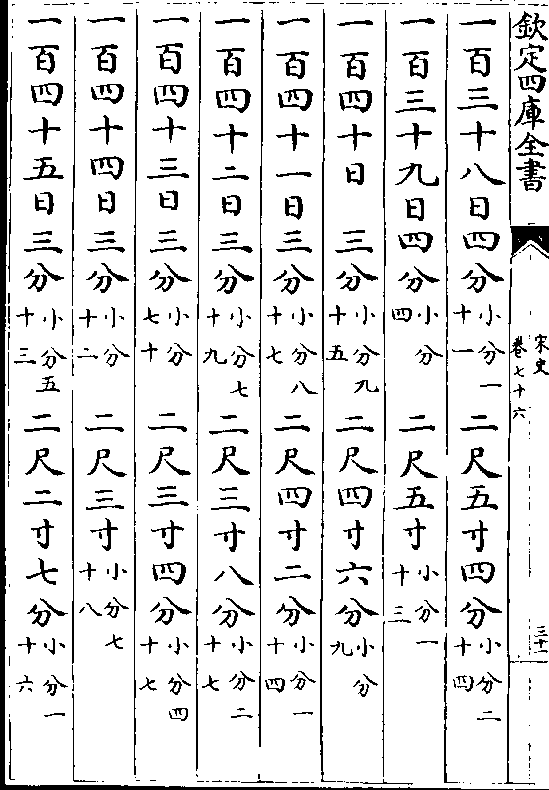 欽定四庫全書
宋史
卷七十六
三十一
一百三十八日四分小分一十一 二尺五寸四分小分二十四
一百三十九日四分小分四 二尺五寸小分一十三
一百四十日 三分小分九十五 二尺四寸六分小分九
一百四十一日三分小分八十七 二尺四寸二分小分一十四
一百四十二日三分小分七十九 二尺三寸八分小分二十七
一百四十三日三分小分七十 二尺三寸四分小分四十七
一百四十四日三分小分十二 二尺三寸小分七十八
一百四十五日三分小分五十三 二尺二寸七分小分一十六